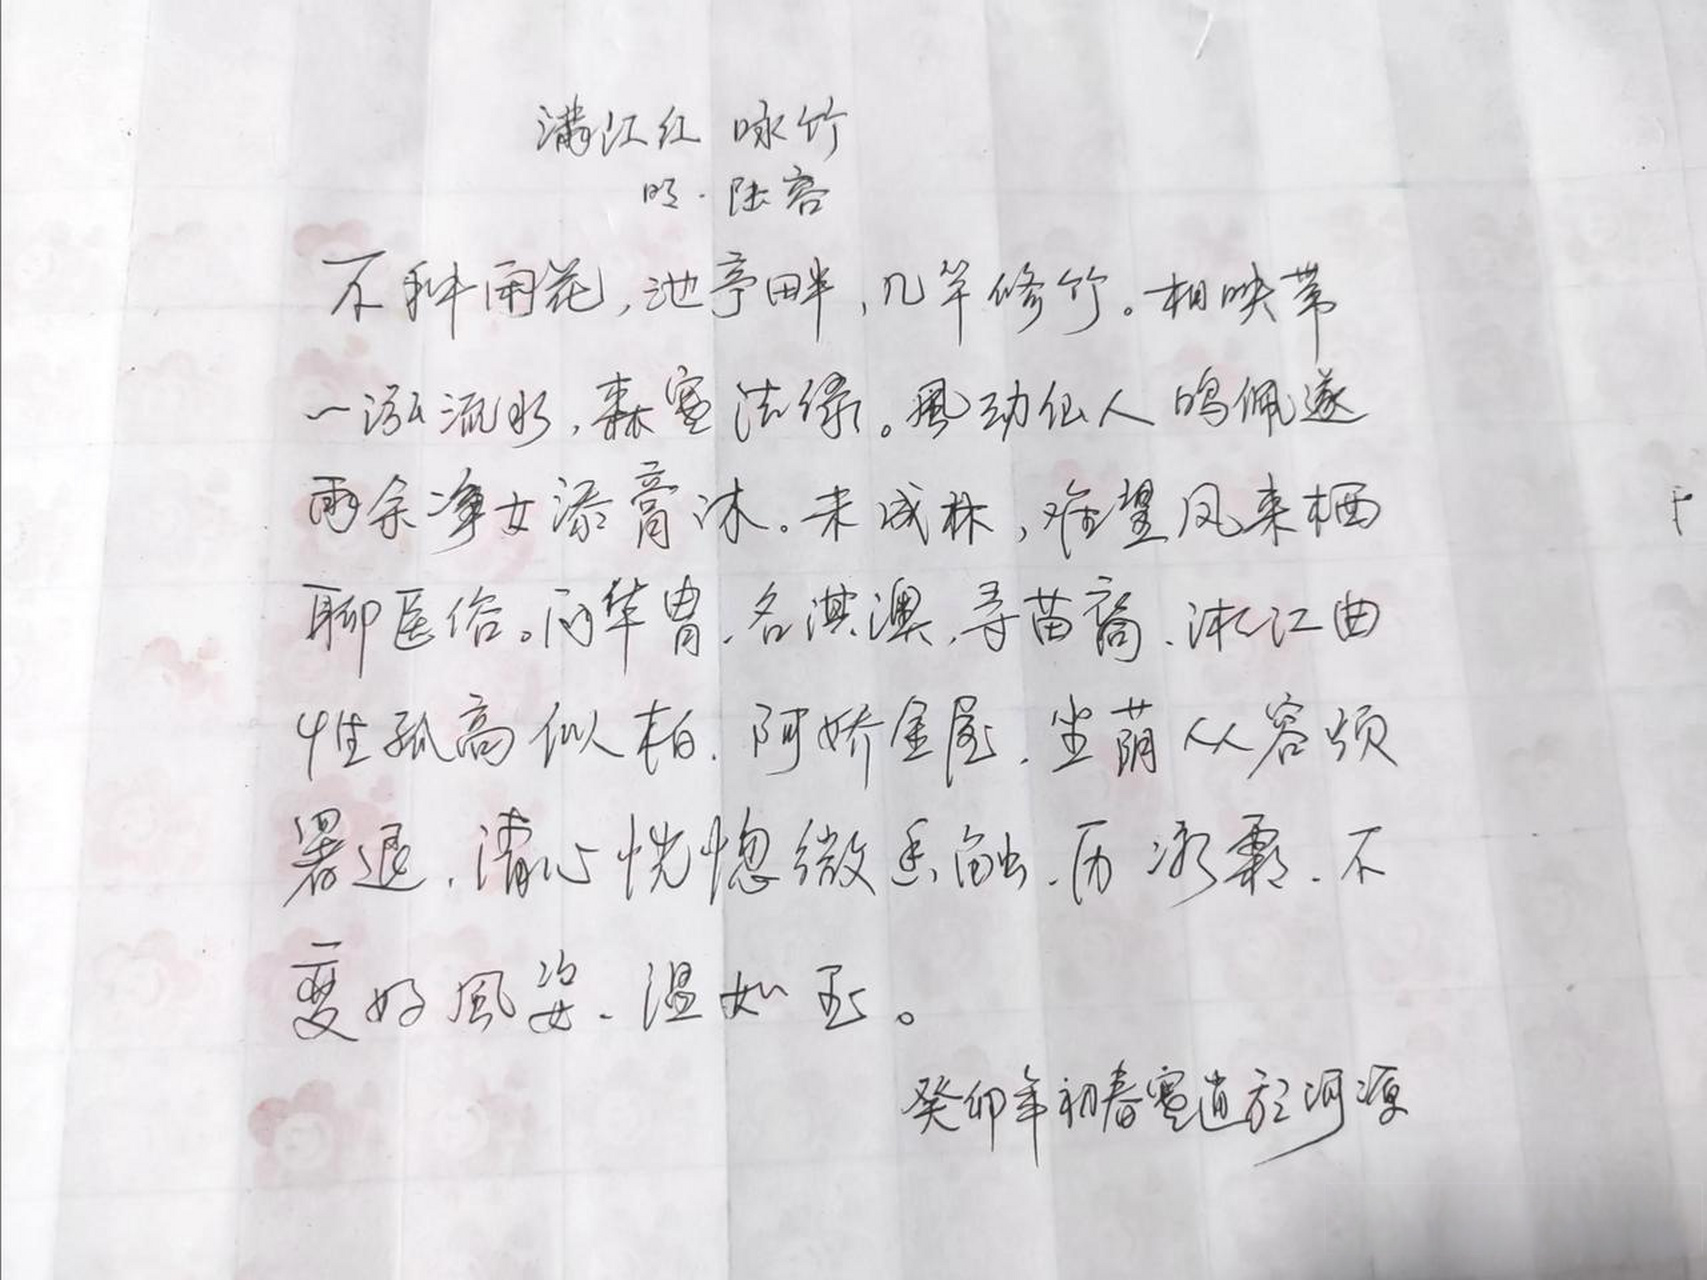 满江红 咏竹
明·陆容
不种闲花,池亭畔,几竿修竹。相映带
一泓流水,森寒洁绿。風动仙人鸣佩遂
雨余净女添膏沐。未成林,难望凤来栖
聊医俗。问华胄.名淇澳.寻苗裔.湘江曲
性孤高似柏.阿娇金屋.坐荫从容烦
暑退.清心恍惚微香触.历冰霜.不
变好風姿.温如玉。
癸卯年初春于河源